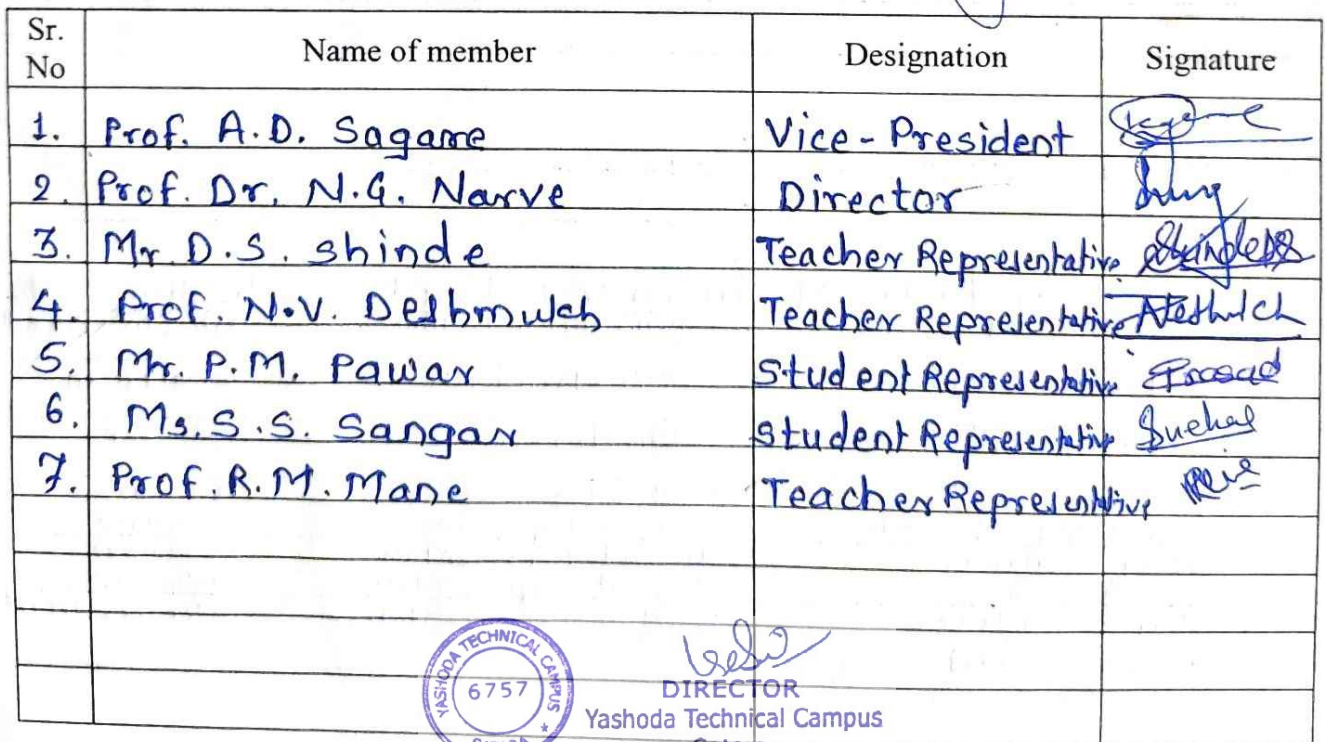 Sr. No Name of member Designation Signature
1. Prof. A.D. Sagare Vice-President
2. Prof. Dr. N.G. Narve Director
3. Mr. D.S. Shinde Teacher Representative ShindeDS
4. Prof. N.V. Deshmukh Teacher Representative
5. Mr. P.M. Pawar Student Representative Prasad
6. Ms. S.S. Sangar Student Representative
7. Prof. R.M. Mane Teacher Representative
YASHODA TECHNICAL CAMPUS
6757
DIRECTOR
Yashoda Technical Campus